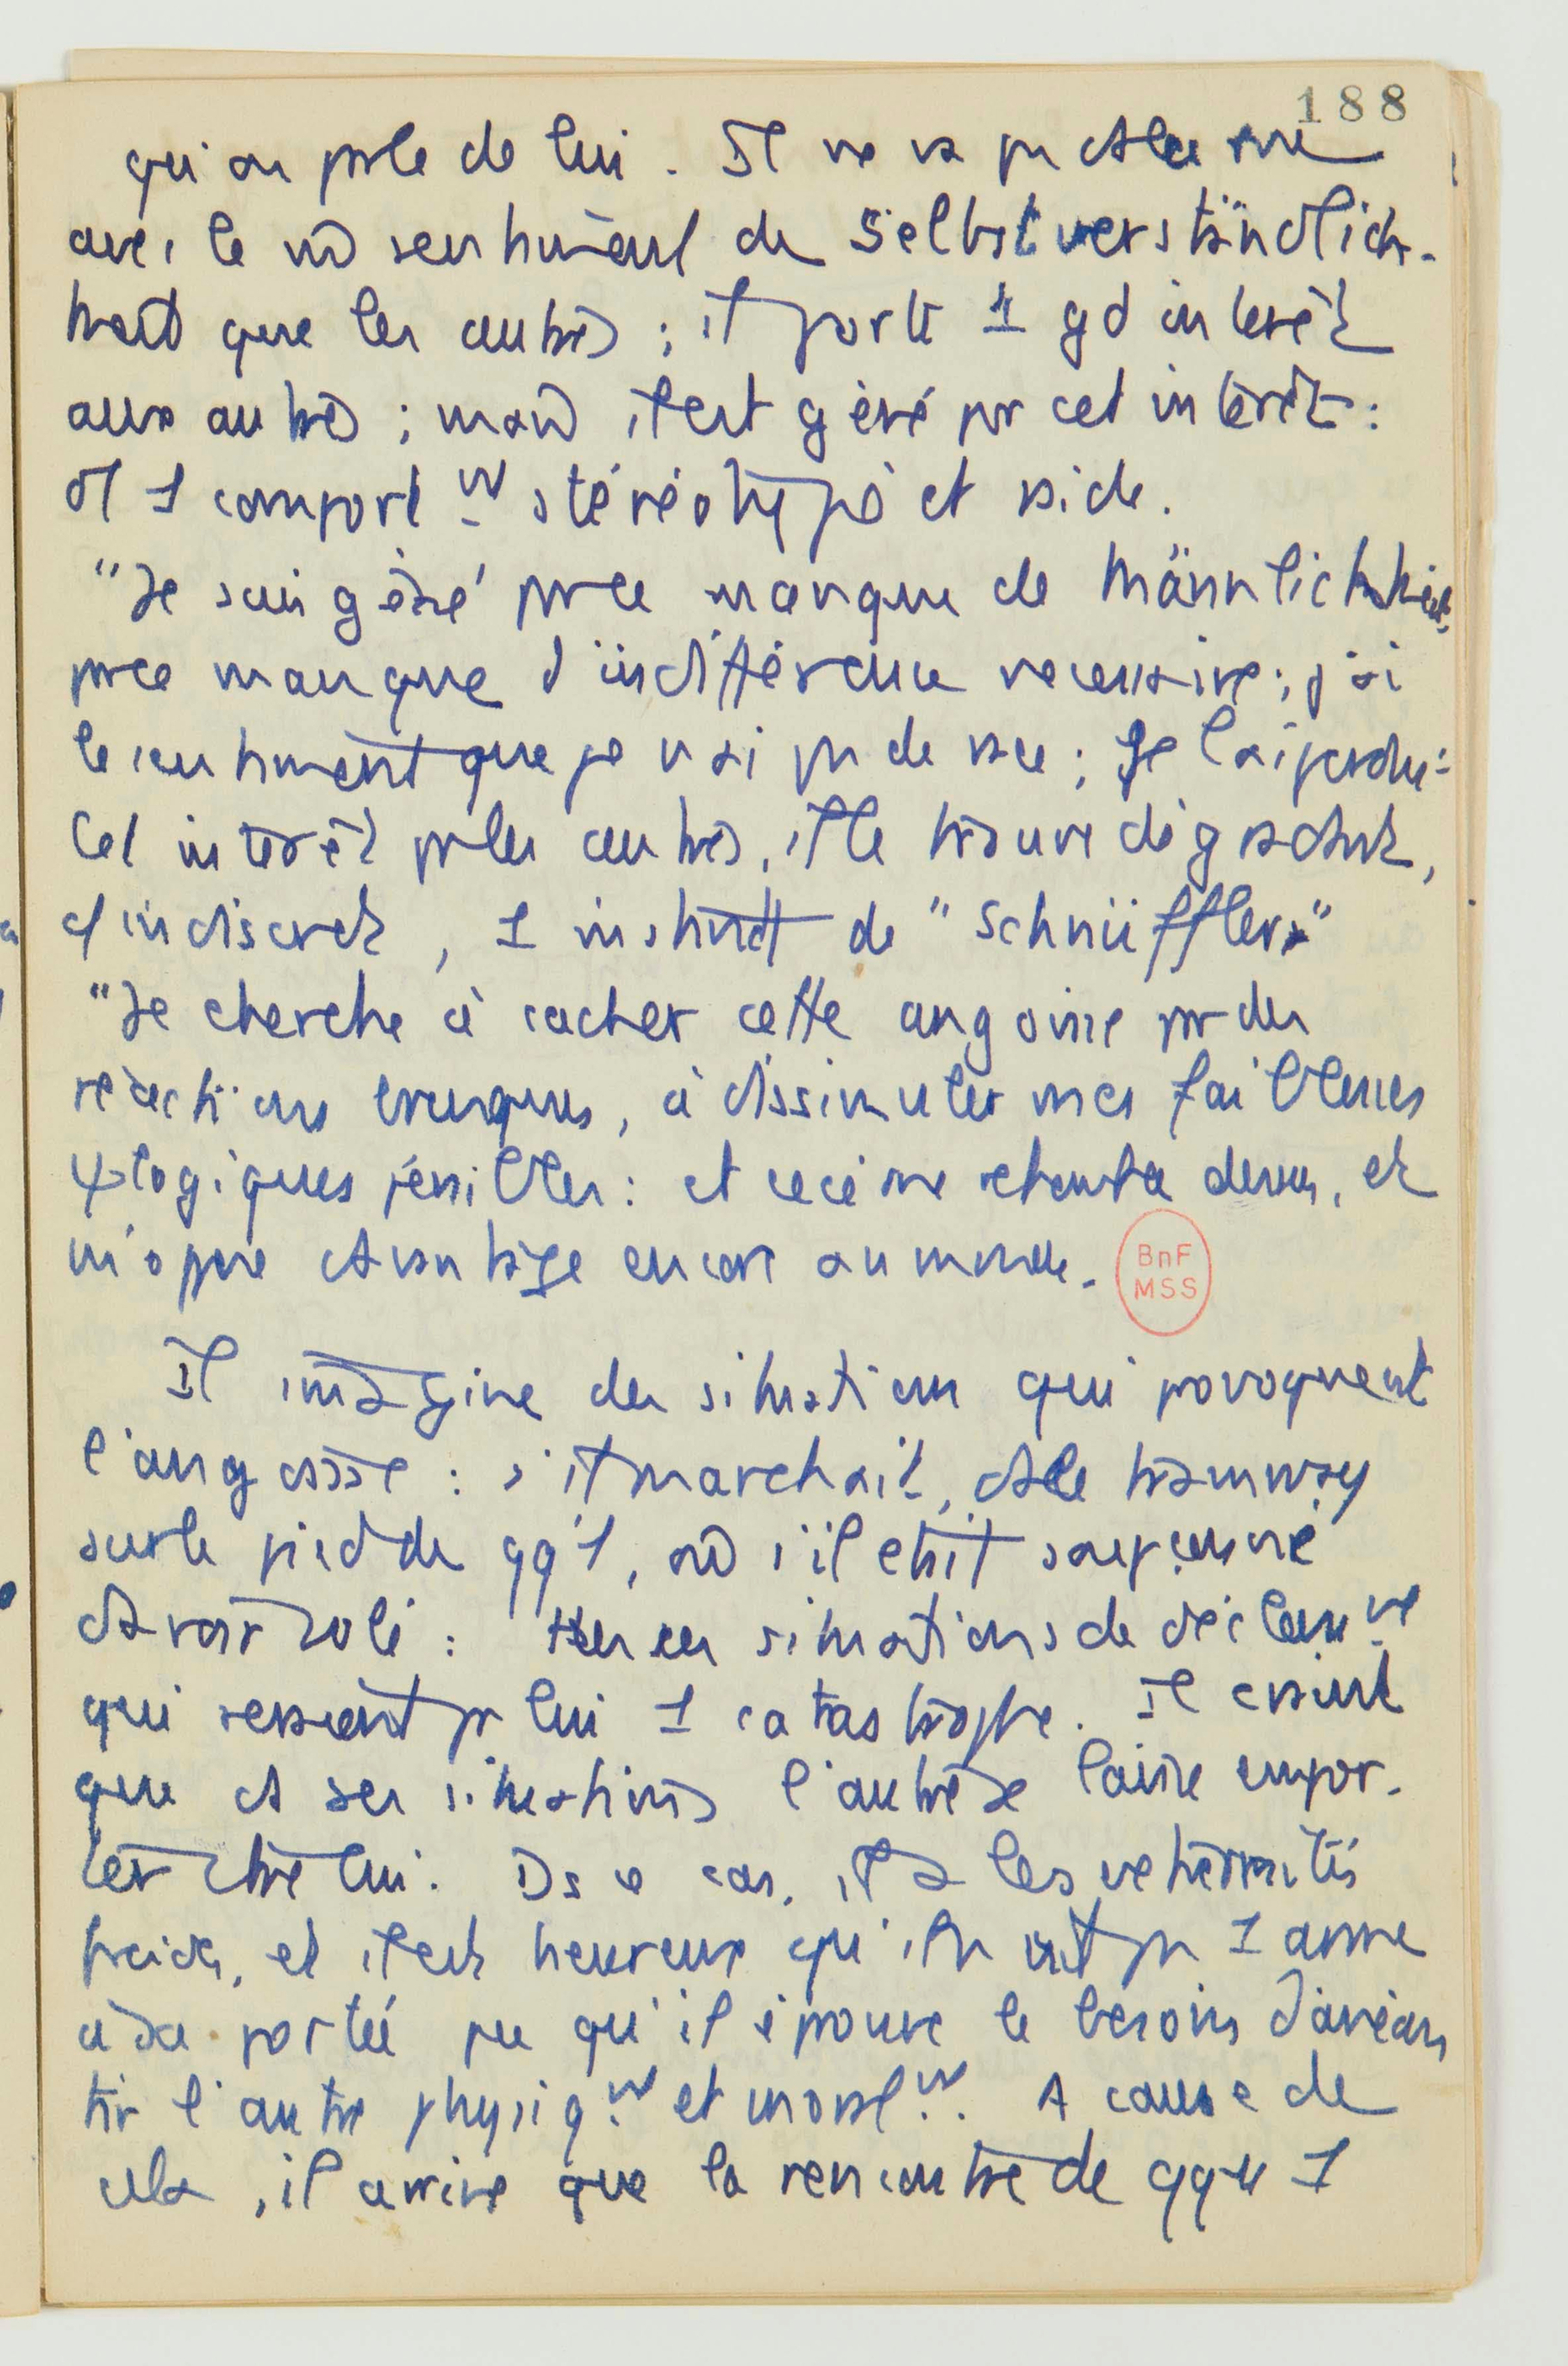 188
qu'on parle de lui. Il ne va pas ds la rue
avec le m̂ sentiment de Selbstverständlich-
keit que les autres ; il porte 1 gd intérêt
aux autres ; mais il est gêné par cet intérêt :
d'où 1 comportt stéréotypé et raide.
"Je suis gêné par le manque de Männlichkeit,
par le manque d'indifférence nécessaire ; j'ai
le sentiment que je n'ai pas de ; je l'ai perdue"
Cet intérêt pr les autres, il le trouve dégradant,
d'indiscret, 1 instinct de "Schnüffler"
"Je cherche à cacher cette angoisse par des
réactions brusques, à dissimuler mes faiblesses
ψlogiques pénibles : et ceci me retombe dessus, et
m'oppose davantage encore au monde.
BnF
MSS
Il imagine des situations qui provoquent
l'angoisse : s'il marchait, ds le tramway
sur le pied de qq'1, ou s'il était soupçonné
d'avoir volé : ttes ces situations de déclassmt
qui seraient pr lui 1 catastrophe. Il craint
que ds ses situations l'autre se laisse empor-
ter ctre lui. Ds ce cas, il a les extrémités
froides, et il est heureux qu'il n'ait pas 1 arme
à sa portée parce qu'il éprouve le besoin d'anéan
tir l'autre physiqt et moralt. A cause de
cela, il arrive que la rencontre de qqu 1